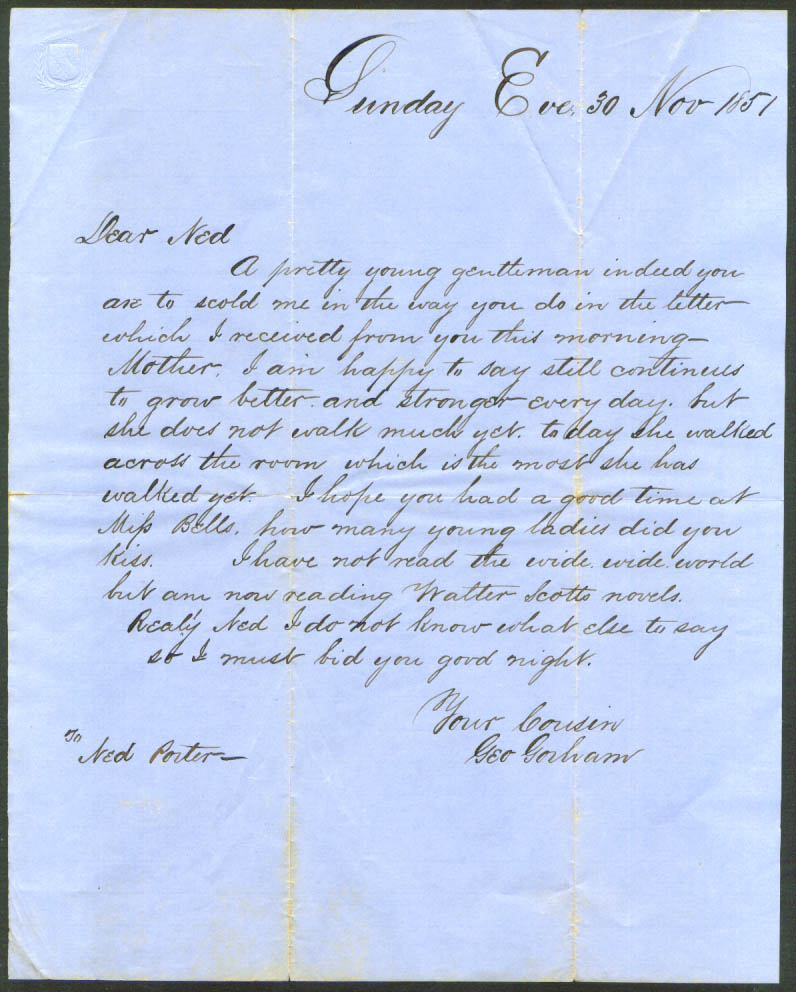 Sunday Eve. 30 Nov 1851
Dear Ned
A pretty young gentleman indeed you
are to scold me in the way you do in the letter
which I received from you this morning—
Mother. I am happy to say still continues
to grow better. and stronger every day. but
she does not walk much yet. to day she walked
across the room which is the most she has
walked yet. I hope you had a good time at
Miss Bells. how many young ladies did you
kiss. I have not read the wide. wide. world
but am now reading Walter Scotts novels.
Realy Ned I do not know what else to say
so I must bid you good night.
Your Cousin
Geo Gorham
To
Ned Porter—